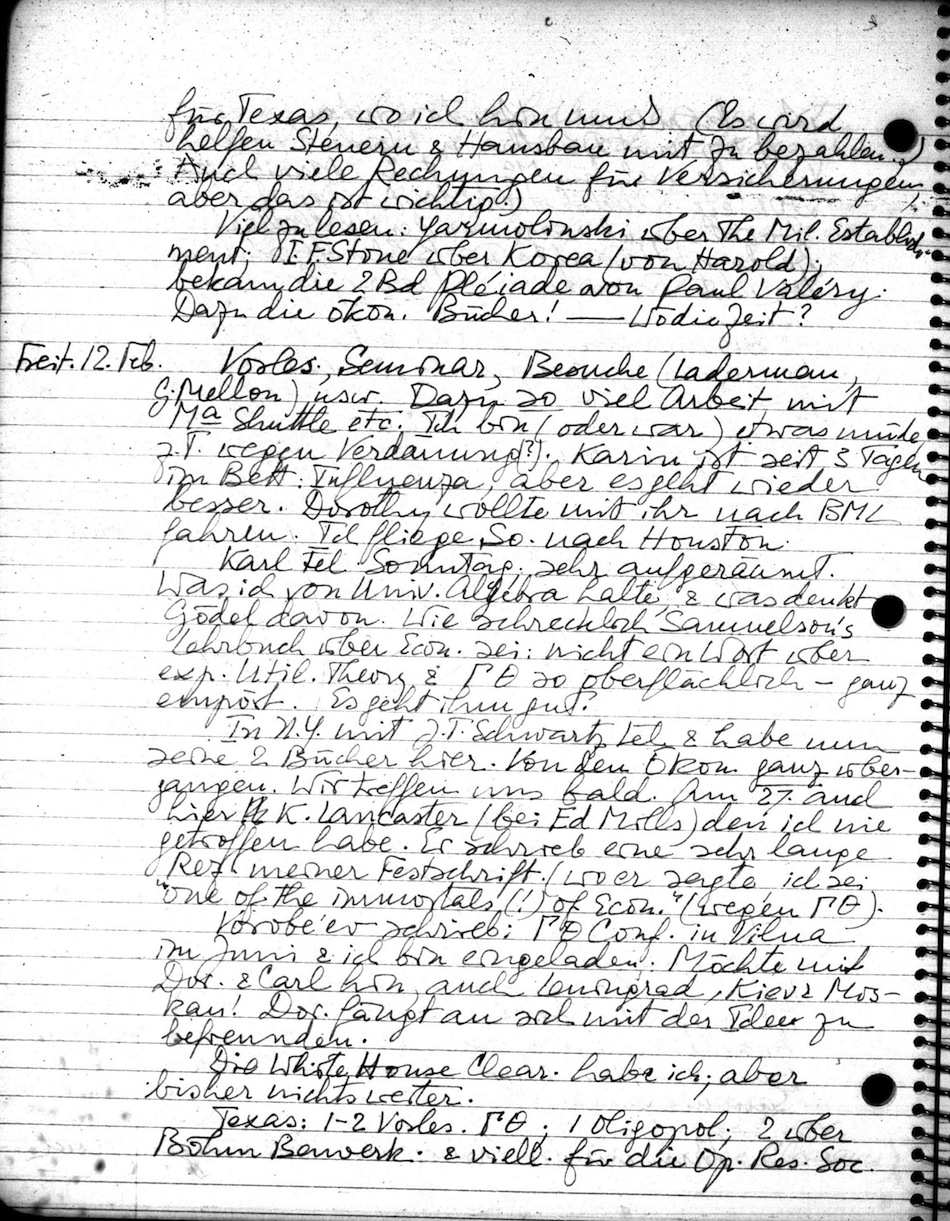 für Texas, wo ich hin muß. (Es wird
helfen Steuern & Hausbau mit zu bezahlen.)
Auch viele Rechnungen für Versicherungen,
aber das ist wichtig.)
Viel zu lesen: Yarmolinski über The Mil. Establish-
ment; I F Stone über Korea (von Harold);
bekam die 2 Bd Pléiade von Paul Valéry.
Dazu die ökon. Bücher! — Wo die Zeit?
Freit. 12. Feb. Vorles., Seminar, Besuche (Laderman,
G. Mellon) usw. Dazu so viel Arbeit mit
Ma Shuttle etc. Ich bin (oder war) etwas müde
z.T. wegen Verdauung(?). Karin ist seit 3 Tagen
im Bett: Influenza, aber es geht wieder
besser. Dorothy wollte mit ihr nach BML
fahren. Ich fliege So. nach Houston.
Karl Tel Sonntag: sehr aufgeräumt.
Was ich von Univ. Algebra halte, & was denkt
Gödel davon. Wie schrecklich Samuelson's
Lehrbuch über Econ. sei: nicht ein Wort über
exp. Util. Theory & ΓΘ so oberflächlich – ganz
empört. Es geht ihm gut.
In N.Y. mit J.T. Schwartz tel & habe nun
seine 2 Bücher hier. Von den Ökon. ganz über-
gangen. Wir treffen uns bald. Am 27. auch
hier K. Lancaster (bei Ed Mills) den ich nie
getroffen habe. Er schrieb eine sehr lange
Rez. meiner Festschrift. (wo er sagte ich sei
"one of the immortals (!) of Econ." (wegen ΓΘ).
Vorobe'ev schrieb: ΓΘ Conf. in Vilna
im Juni & ich bin eingeladen. Möchte mit
Dor. & Carl hin, auch Leningrad, Kiev & Mos-
kau! Dor. fängt an sich mit der Idee zu
befreunden.
Die White House Clear. habe ich; aber
bisher nichts weiter.
Texas: 1-2 Vorles. ΓΘ; 1 Oligopol; 2 über
Böhm Bawerk. & viell. für die Op. Res. Soc.